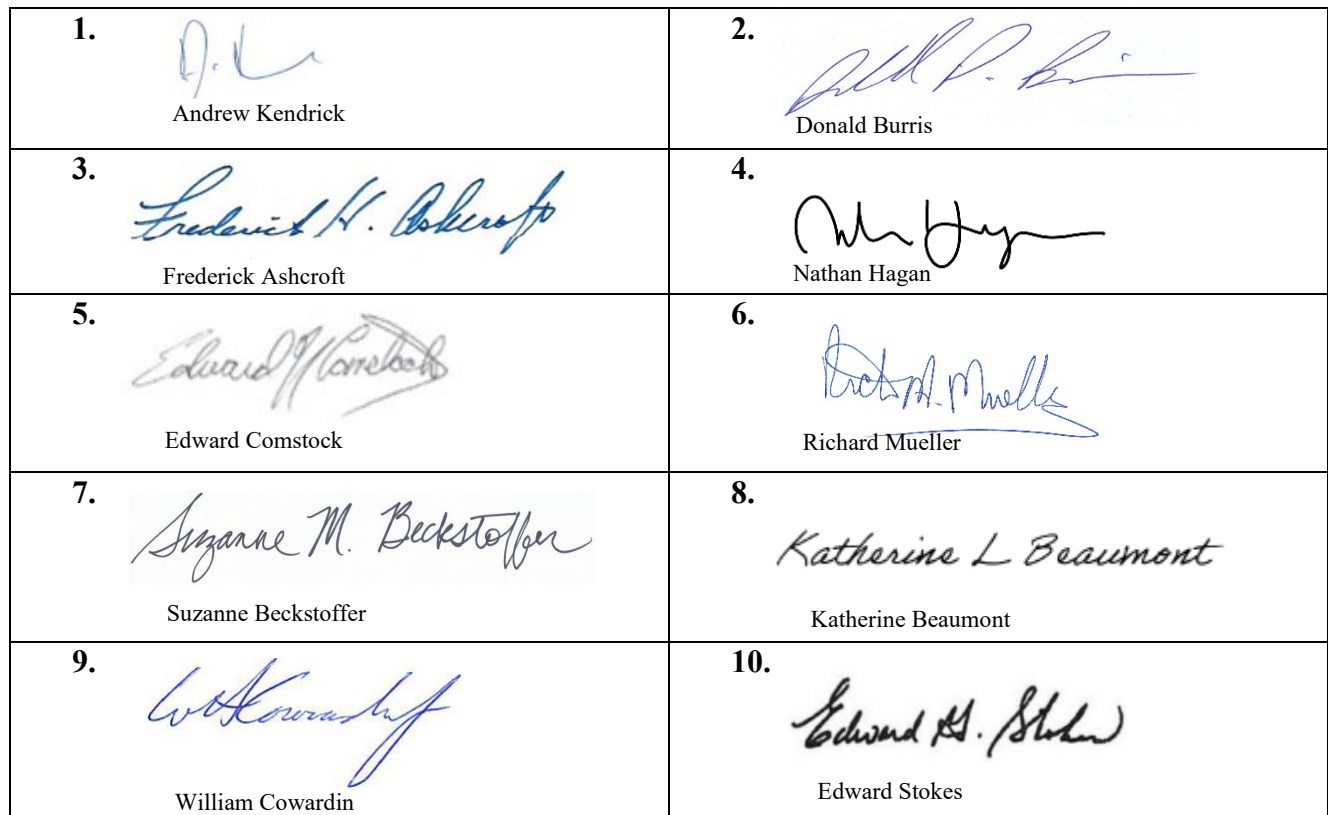 1.
Andrew Kendrick
2.
Donald Burris
3.
Frederick H. Ashcroft
Frederick Ashcroft
4.
Nathan Hagan
5.
Edward Comstock
Edward Comstock
6.
Richard Mueller
7.
Suzanne M. Beckstoffer
Suzanne Beckstoffer
8.
Katherine L Beaumont
Katherine Beaumont
9.
William Cowardin
10.
Edward H. Stokes
Edward Stokes